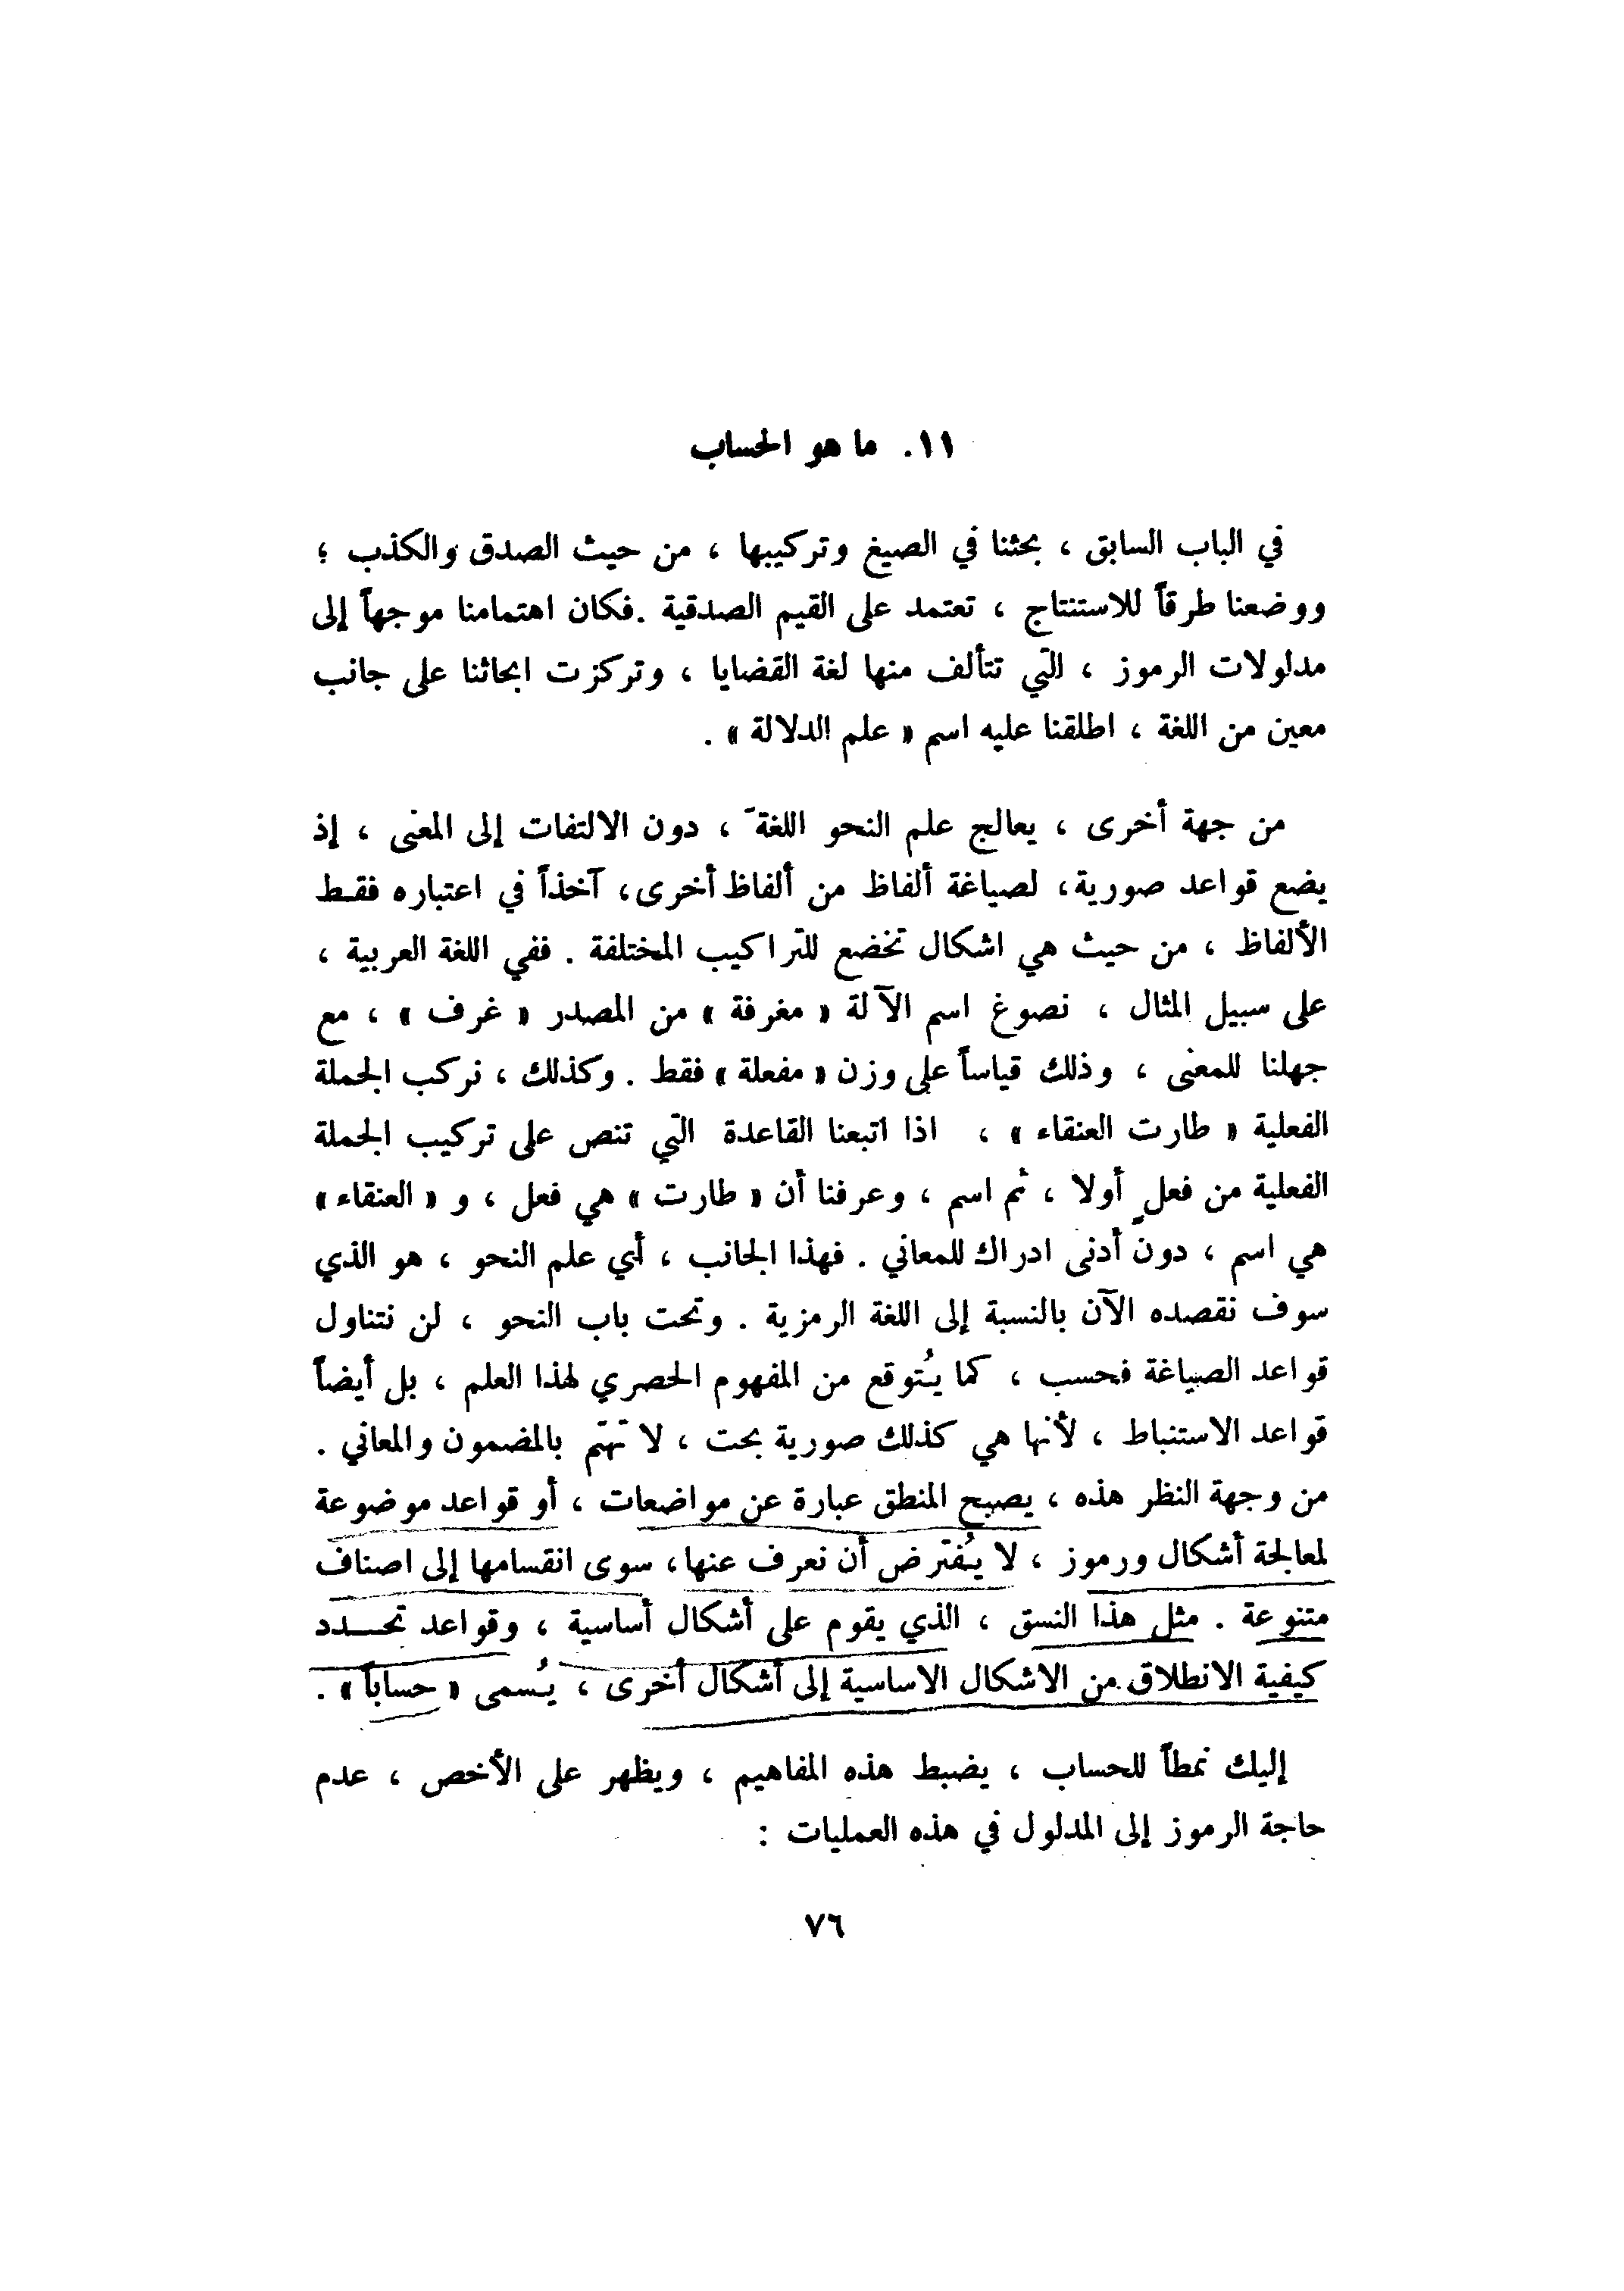 ١١. ما هو الحساب
في الباب السابق ، بحثنا في الصيغ وتركيبها ، من حيث الصدق والكذب ؛
ووضعنا طرقاً للاستنتاج ، تعتمد على القيم الصدقية . فكان اهتمامنا موجهاً إلى
مدلولات الرموز ، التي تتألف منها لغة القضايا ، وتركزت ابحاثنا على جانب
معين من اللغة ، اطلقنا عليه اسم « علم الدلالة » .
من جهة أخرى ، يعالج علم النحو اللغةَ ، دون الالتفات إلى المعنى ، إذ
يضع قواعد صورية ، لصياغة ألفاظ من ألفاظ أخرى ، آخذاً في اعتباره فقـط
الألفاظ ، من حيث هي اشكال تخضع للتراكيب المختلفة . ففي اللغة العربية ،
على سبيل المثال ، نصوغ اسم الآلة « مغرفة » من المصدر « غرف » ، مع
جهلنا للمعنى ، وذلك قياساً على وزن « مفعلة » فقط . وكذلك ، نركب الجملة
الفعلية « طارت العنقاء » ، اذا اتبعنا القاعدة التي تنص على تركيب الجملة
الفعلية من فعلٍ أولا ، ثم اسم ، وعرفنا أن « طارت » هي فعل ، و « العنقاء »
هي اسم ، دون أدنى ادراك للمعاني . فهذا الجانب ، أي علم النحو ، هو الذي
سوف نقصده الآن بالنسبة إلى اللغة الرمزية . وتحت باب النحو ، لن نتناول
قواعد الصياغة فحسب ، كما يُتوقع من المفهوم الحصري لهذا العلم ، بل أيضاً
قواعد الاستنباط ، لأنها هي كذلك صورية بحت ، لا تهتم بالمضمون والمعاني .
من وجهة النظر هذه ، يصبح المنطق عبارة عن مواضعات ، أو قواعد موضوعة
لمعالجة أشكال ورموز ، لا يُفترض أن نعرف عنها ، سوى انقسامها إلى اصناف
متنوعة . مثل هذا النسق ، الذي يقوم على أشكال أساسية ، وقواعد تحـــدد
كيفية الانطلاق من الاشكال الاساسية إلى أشكال أخرى ، يُسمى « حساباً » .
إليك نمطاً للحساب ، يضبط هذه المفاهيم ، ويظهر على الأخص ، عدم
حاجة الرموز إلى المدلول في هذه العمليات :
٧٦